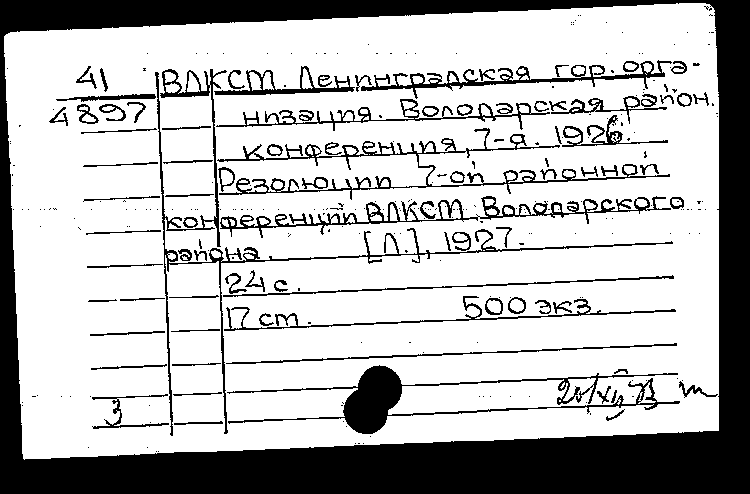 41 ВЛКСМ. Ленинградская гор. орга-
4897 низация. Володарская район.
конференция, 7-я. 1926.
Резолюции 7-ой районной
конференции ВЛКСМ Володарского
района. [Л.], 1927.
24 с.
17 cm. 500 экз.
3